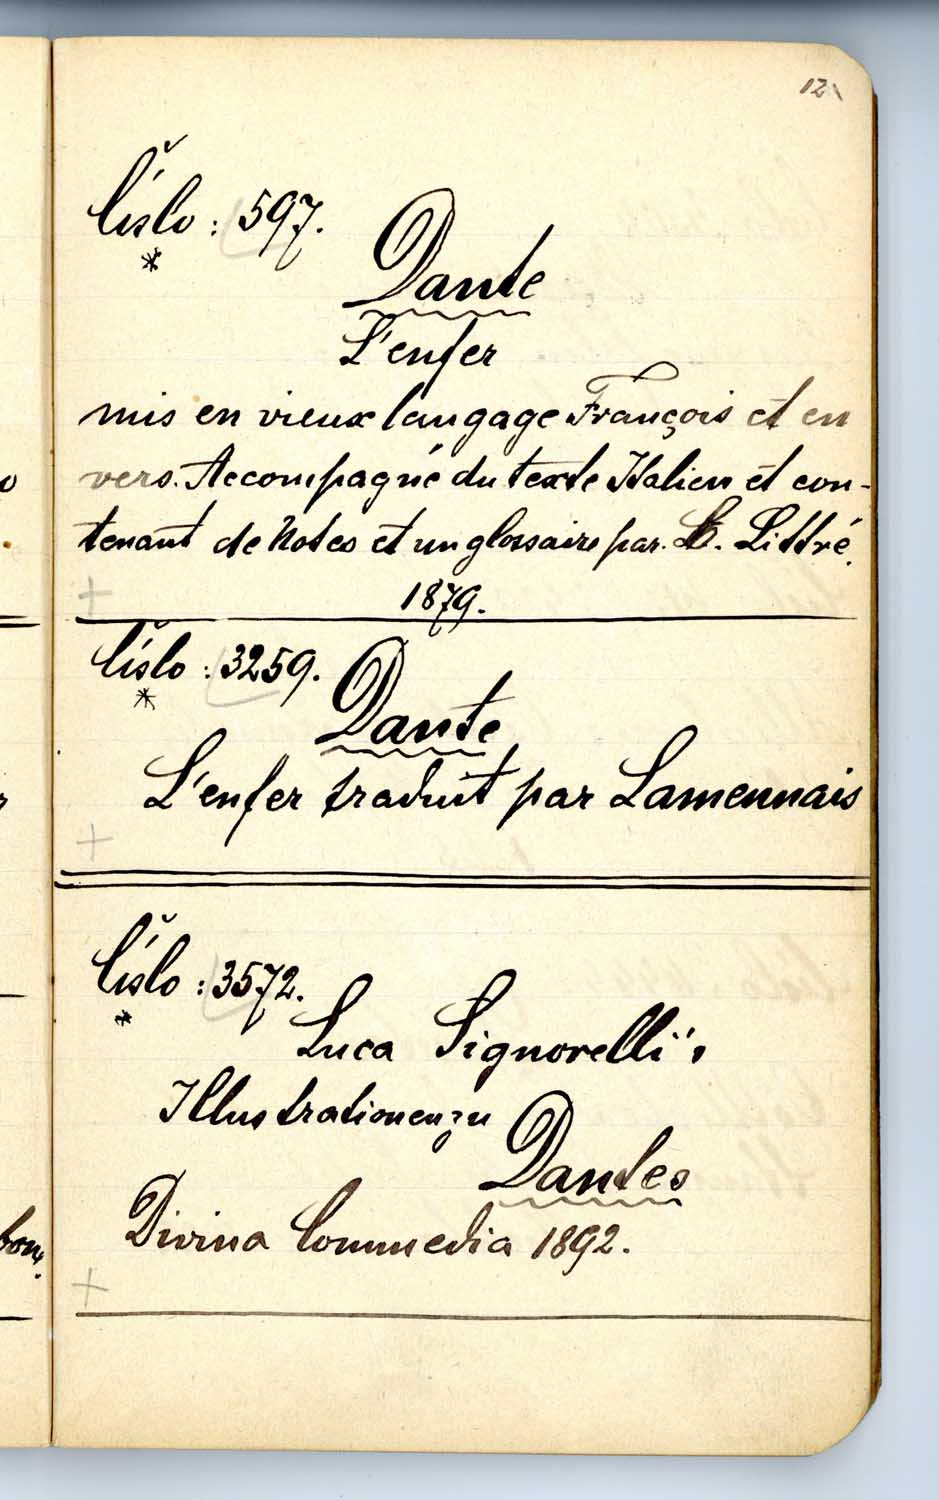 12
Číslo : 597.
*
Dante
L'enfer
mis en vieux langage François et en
vers. Accompagné du texte Italien et con-
tenant de Notes et un glossaire par. E. Littré.
1879.
+
Číslo : 3259.
*
Dante
L'enfer traduit par Lamennais
+
Číslo : 3572.
*
Luca Signorelli's
Illustrationen zu
Dantes
Divina Commedia 1892.
+